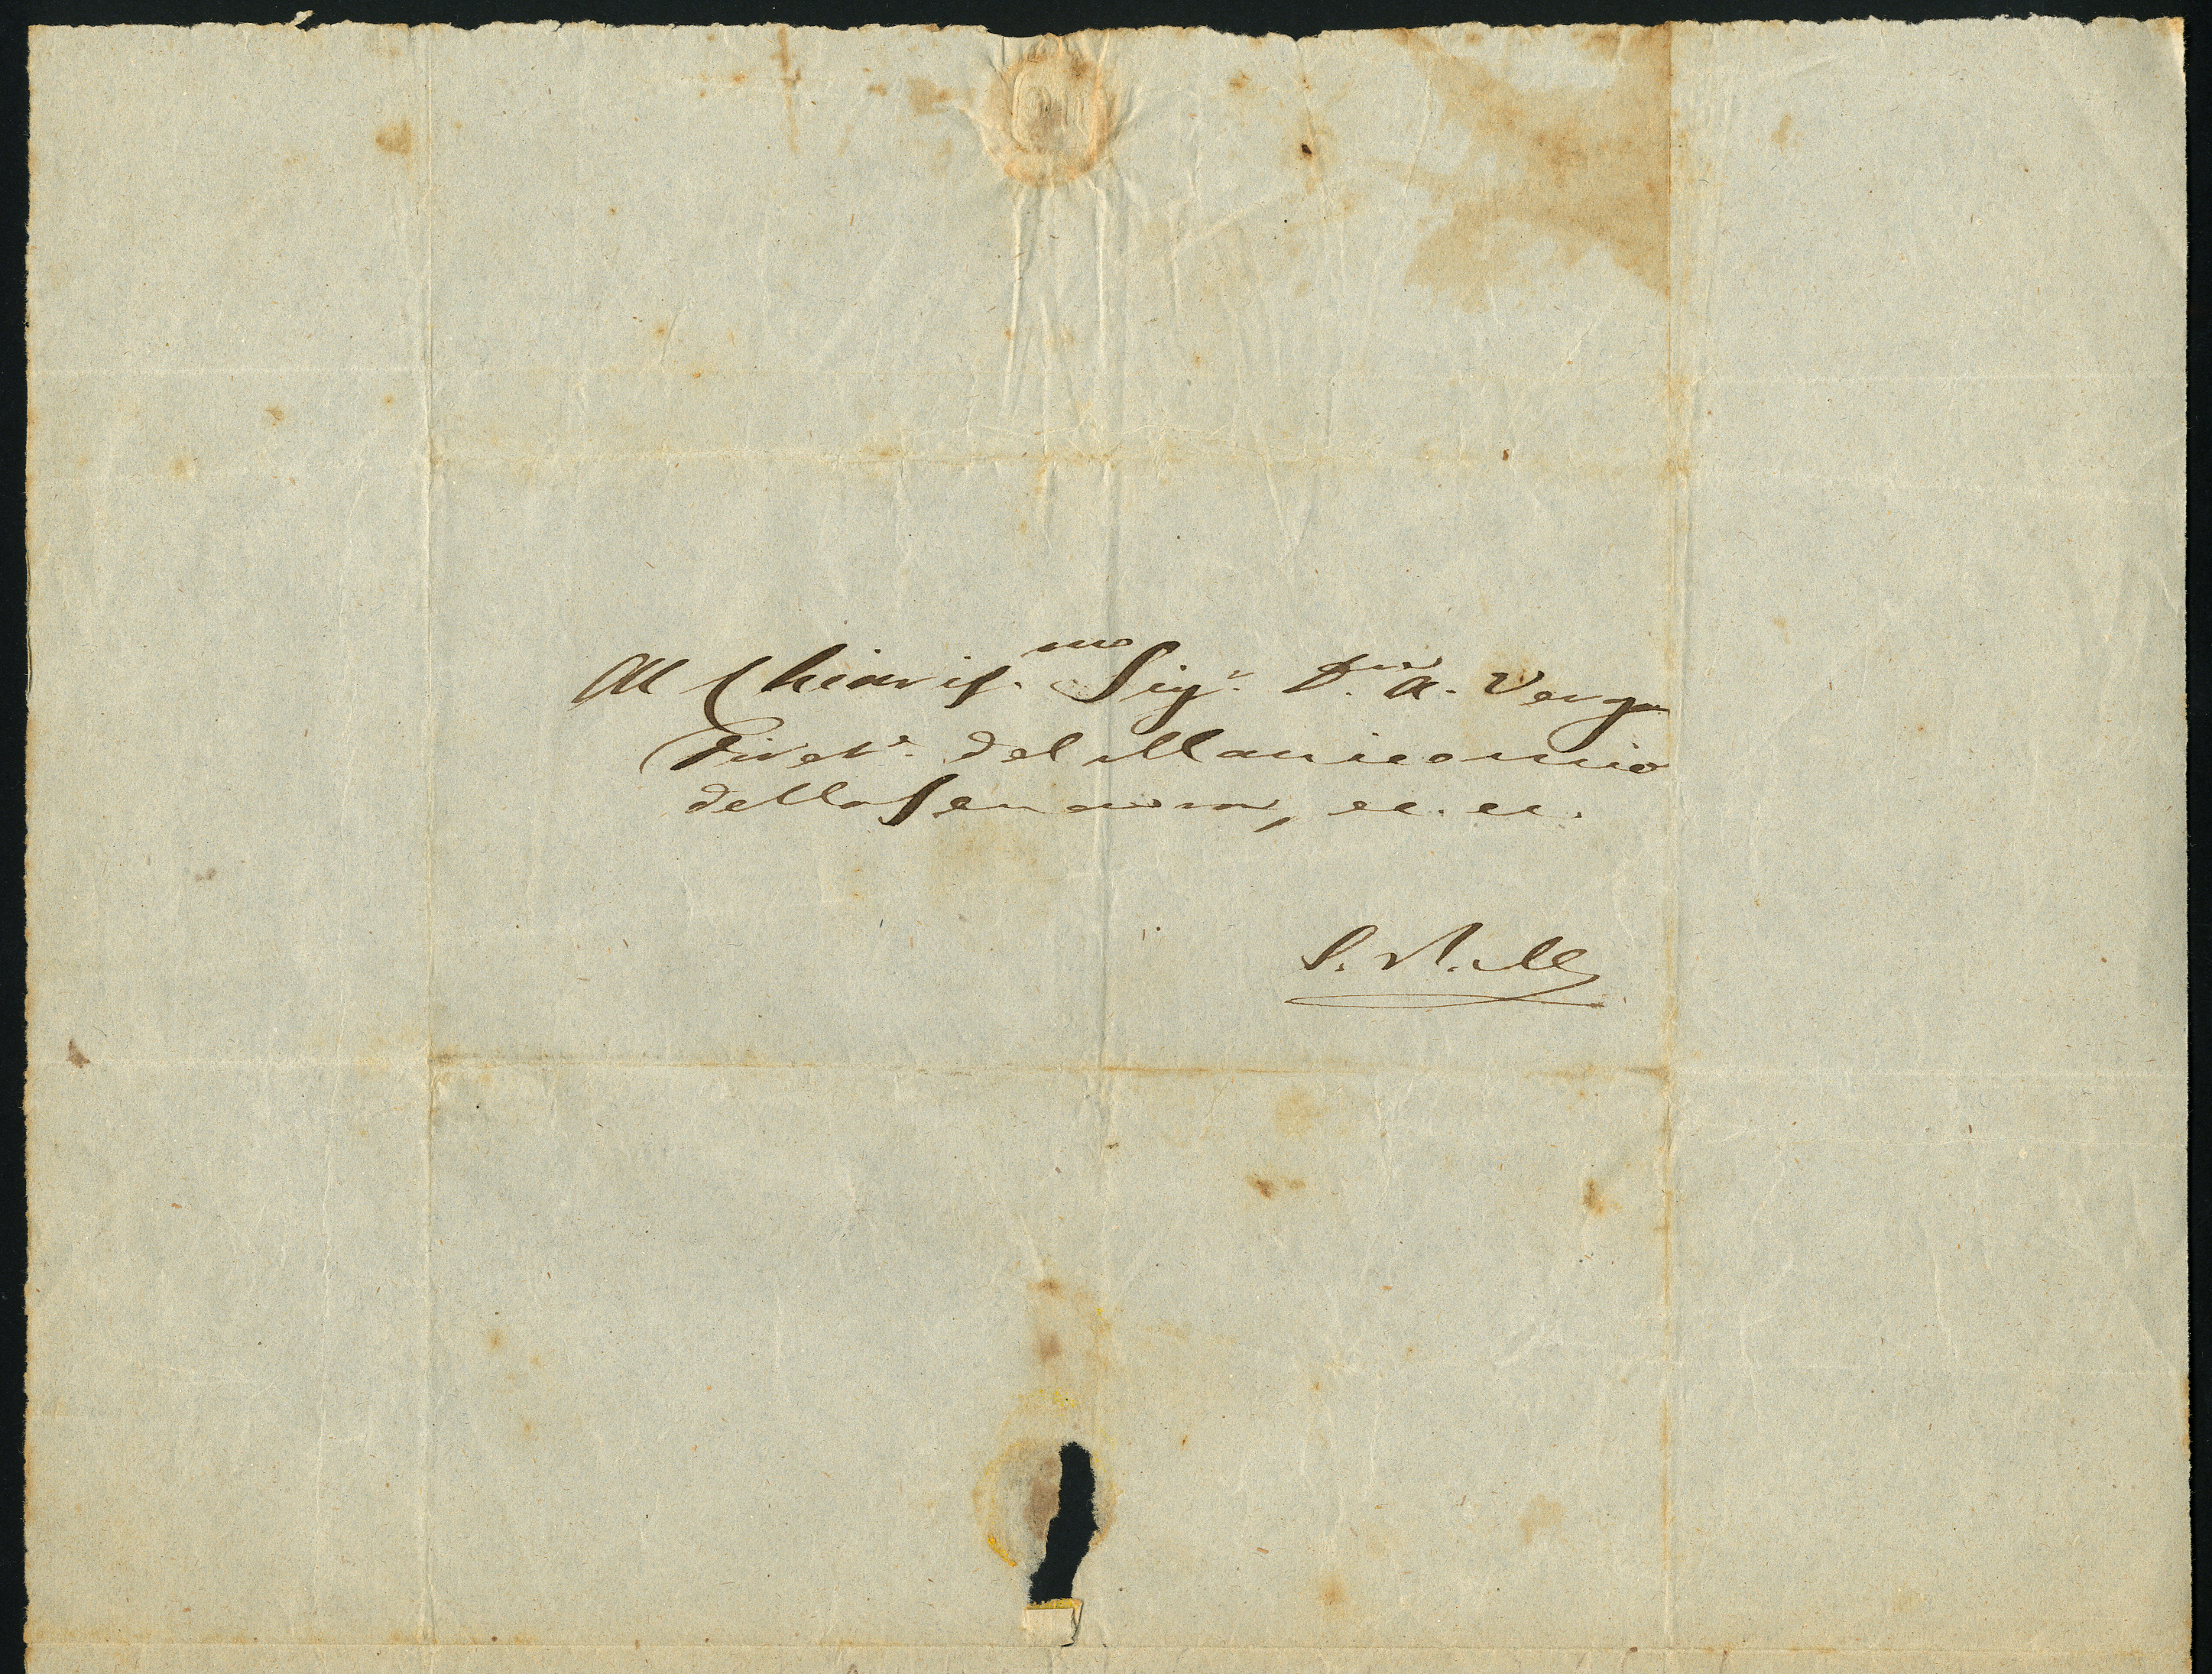 Al Chiariss.mo Sigr. Dr. A. Verga
Dirett.e del Manicomio
della Senavra, ec. ec.
S. R. M.